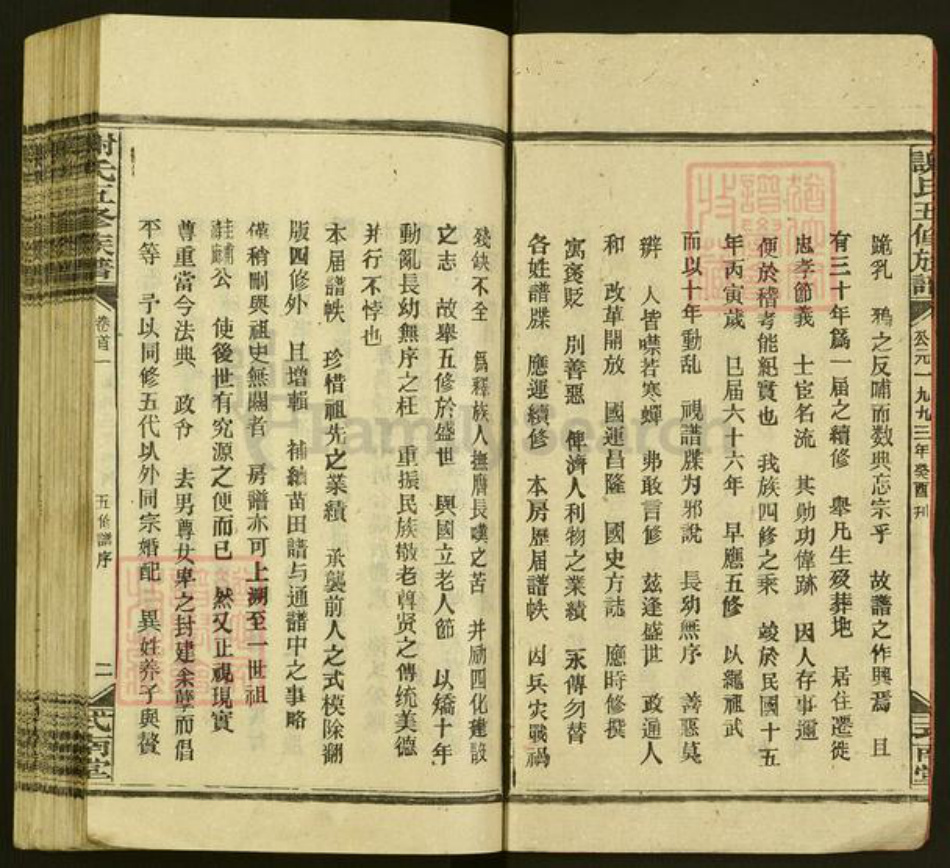 謝氏五修族譜
公元一九九三年癸酉刊
跪乳 鸦之反哺而数典忘宗乎 故譜之作興焉 且
有三十年爲一届之續修 舉凡生殁葬地 居住遷徙
忠孝節義 士宦名流 其勋功偉跡 因人存事
便於稽考能紀實也 我族四修之乘 竣於民國十五
年丙寅歲 已届六十六年 早應五修 以繩祖武
而以十年動乱 視譜牒为邪說 長幼無序 善惡莫
辨 人皆噤若寒蟬 弗敢言修 兹逢盛世 政通人
和 改革開放 國運昌隆 國史方誌 應時修撰
寓褒貶 别善惡 俾濟人利物之業績 永傳勿替
各姓譜牒 應運續修 本房歷届譜帙 因兵灾戰禍
殘缺不全 爲釋族人撫膺長嘆之苦 并励四化建設
之志 故舉五修於盛世 與國立老人節 以矯十年
動亂長幼無序之枉 重振民族敬老尊贤之傳统美德
并行不悖也
本届譜帙 珍惜祖先之業績 承襲前人之式模除翻
版四修外 且增輯 補續苗田譜与通譜中之事略
僅稍删與祖史無關者 房譜亦可上溯至一世祖
公 使後世有究源之便而已 然又正視現實
尊重當今法典 政令 去男尊女卑之封建余孽而倡
平等 予以同修五代以外同宗婚配 異姓养子與贅
謝氏五修族譜
卷首一
五修譜序
二
式南堂